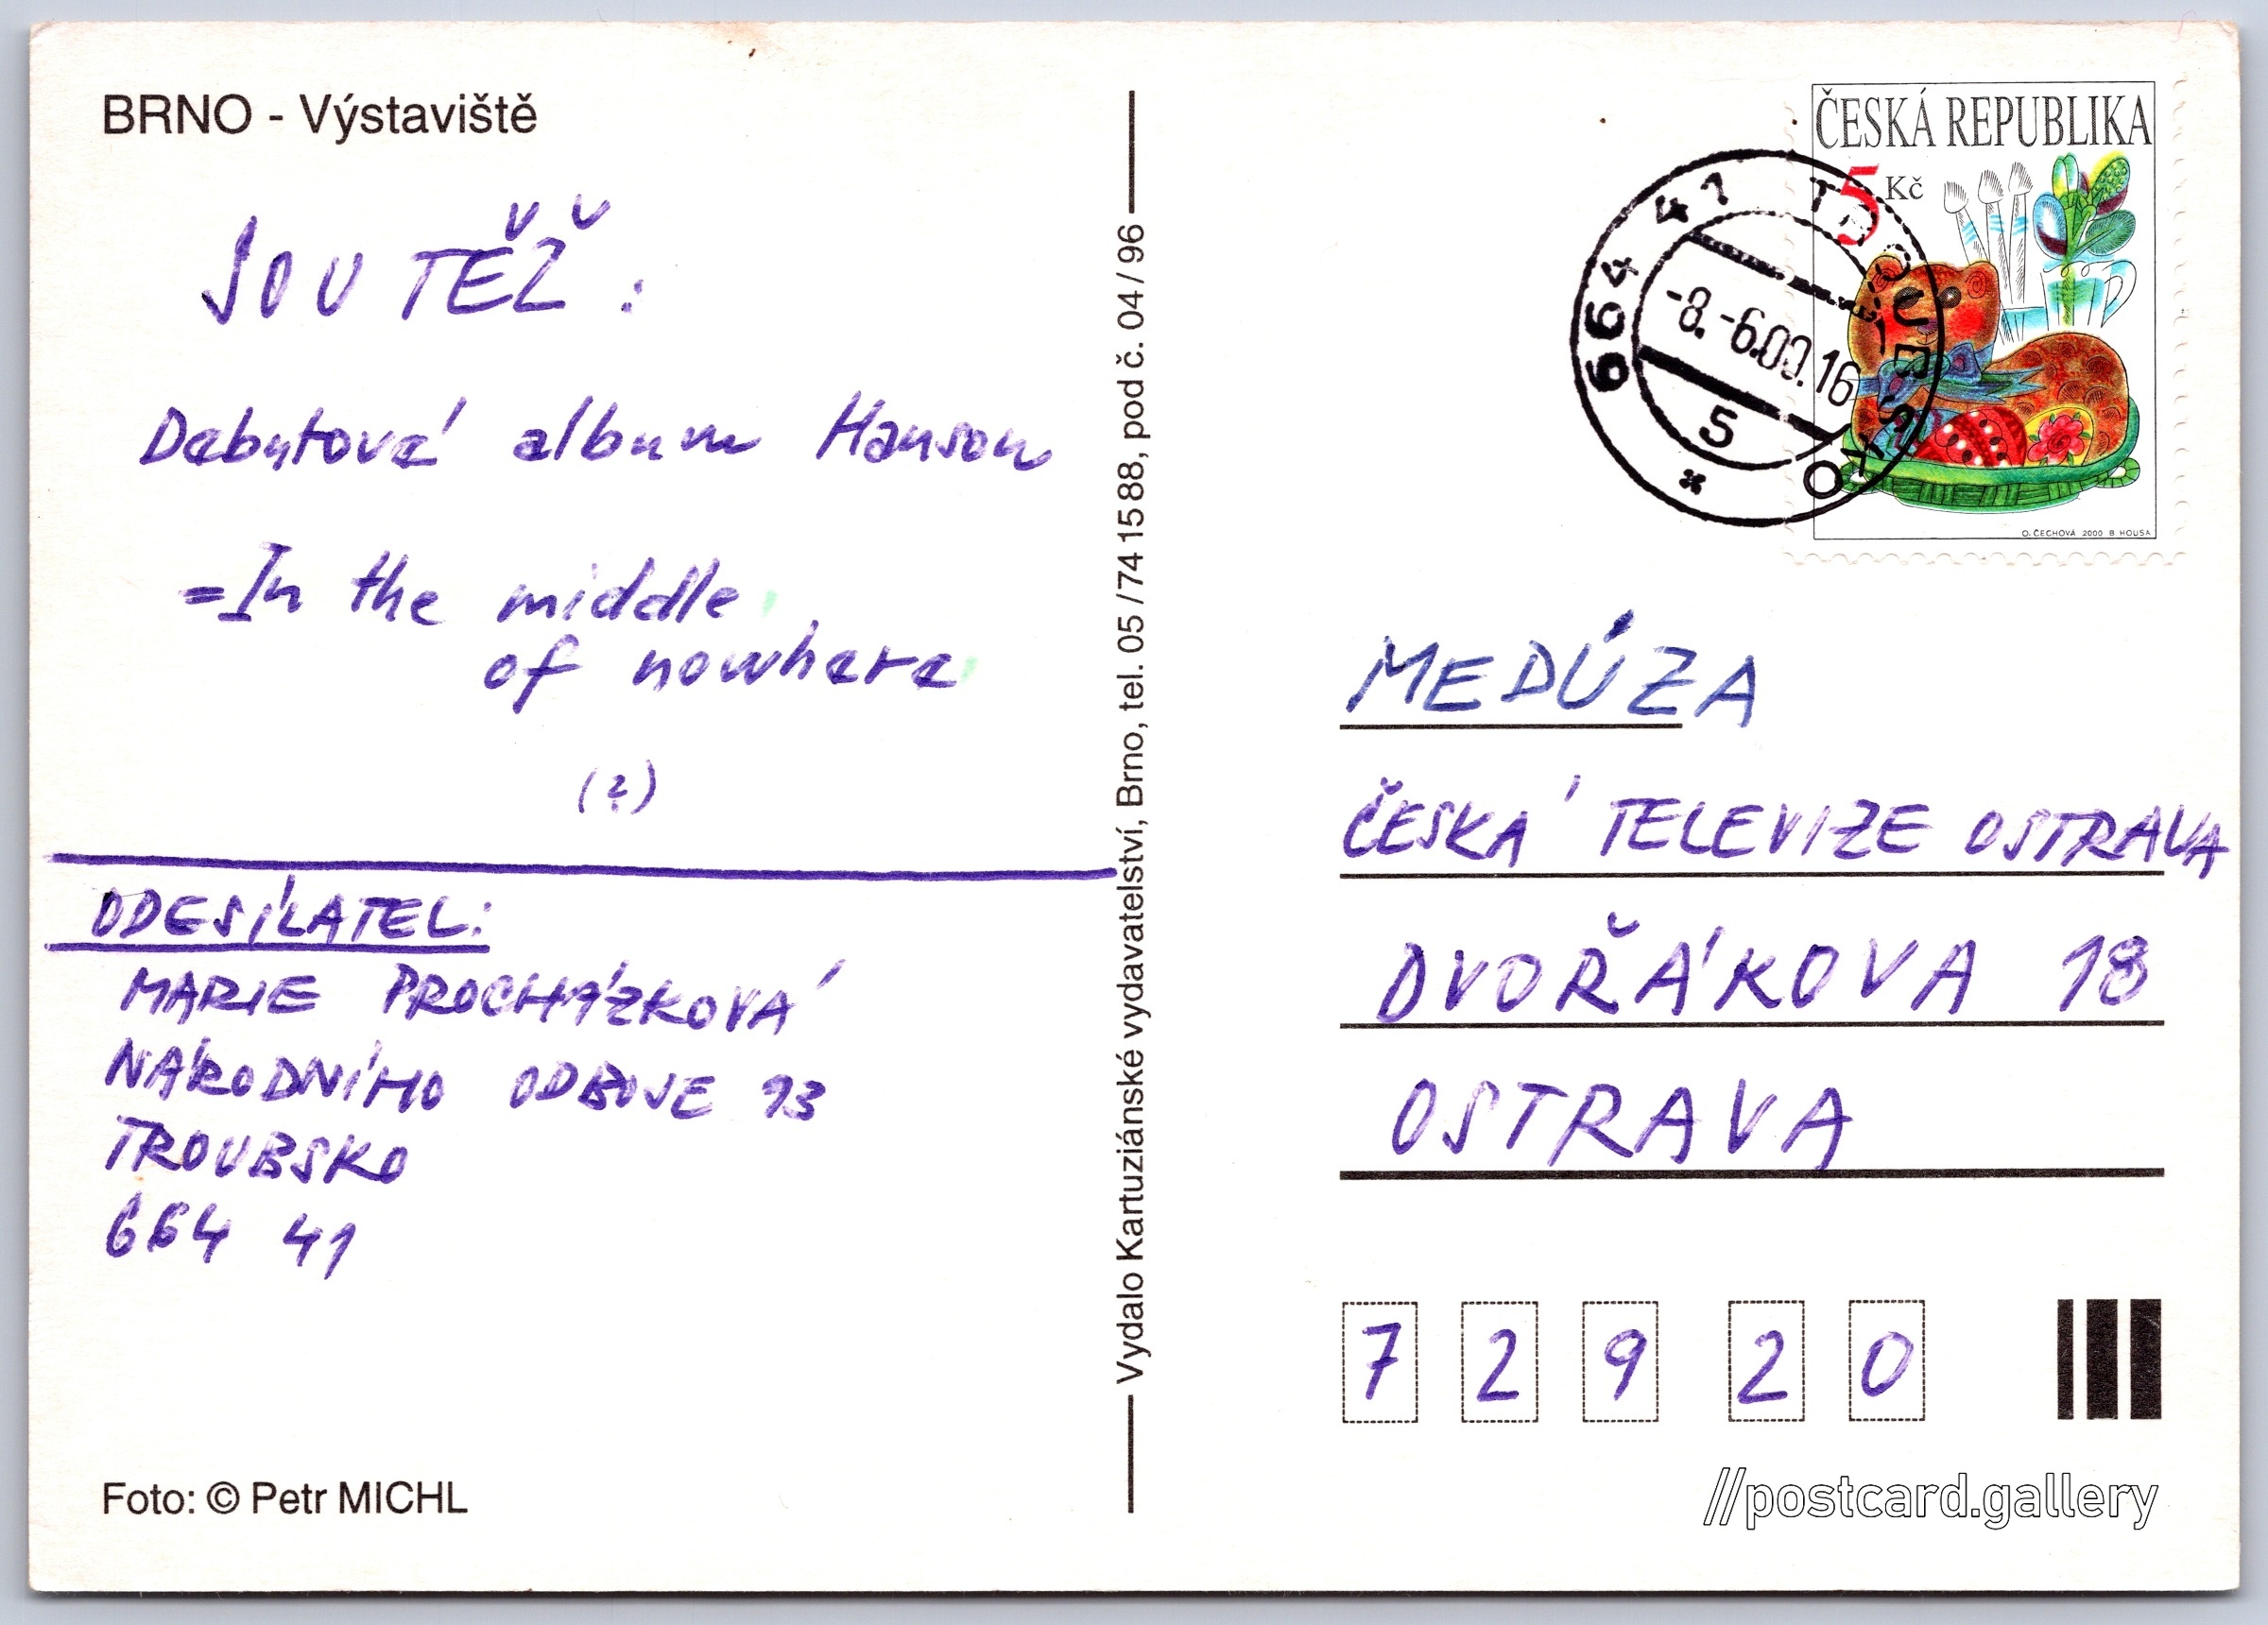 BRNO - Výstaviště
SOUTĚŽ:
Debutová album Hanson
=In the middle
of nowhere
(?)
ODESÍLATEL:
MARIE PROCHÁZKOVÁ
NÁRODNÍHO ODBOJE 13
TROUBSKO
664 41
Foto: © Petr MICHL
Vydalo Kartuziánské vydavatelství, Brno, tel. 05/74 15 88, pod č. 04/96
ČESKÁ REPUBLIKA
5 Kč
O. ČECHOVÁ 2000 B HOUSA
664 41 TROUBSKO
-8.-6.00.16
5
*
MEDÚZA
ČESKÁ TELEVIZE OSTRAVA
DVOŘÁKOVA 18
OSTRAVA
7 2 9 2 0
//postcard.gallery